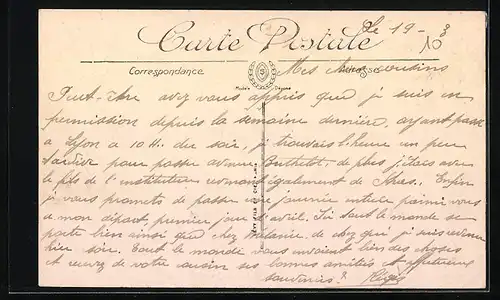 le 19-3
Carte Postale
Correspondance Adresse
Mes chers cousins
Modèle Déposé
Peut-être avez vous appris que je suis en
permission depuis la semaine dernière, ayant passé
à Lyon à 10 H. du soir, je trouvais l'heure un peu
tardive pour passer avenue Berthelot, de plus j'étais avec
le fils de l'instituteur revenant également de Stras. Enfin
je vous promets de passer une journée entière parmi vous
à mon départ, premier jour avril. Ici tout le monde se
porte bien ainsi que chez de chez qui je suis revenu
hier soir. Tout le monde vous envoient bien des choses
et recevez de votre cousin ses bonnes amitiés et affectueux
souvenirs.